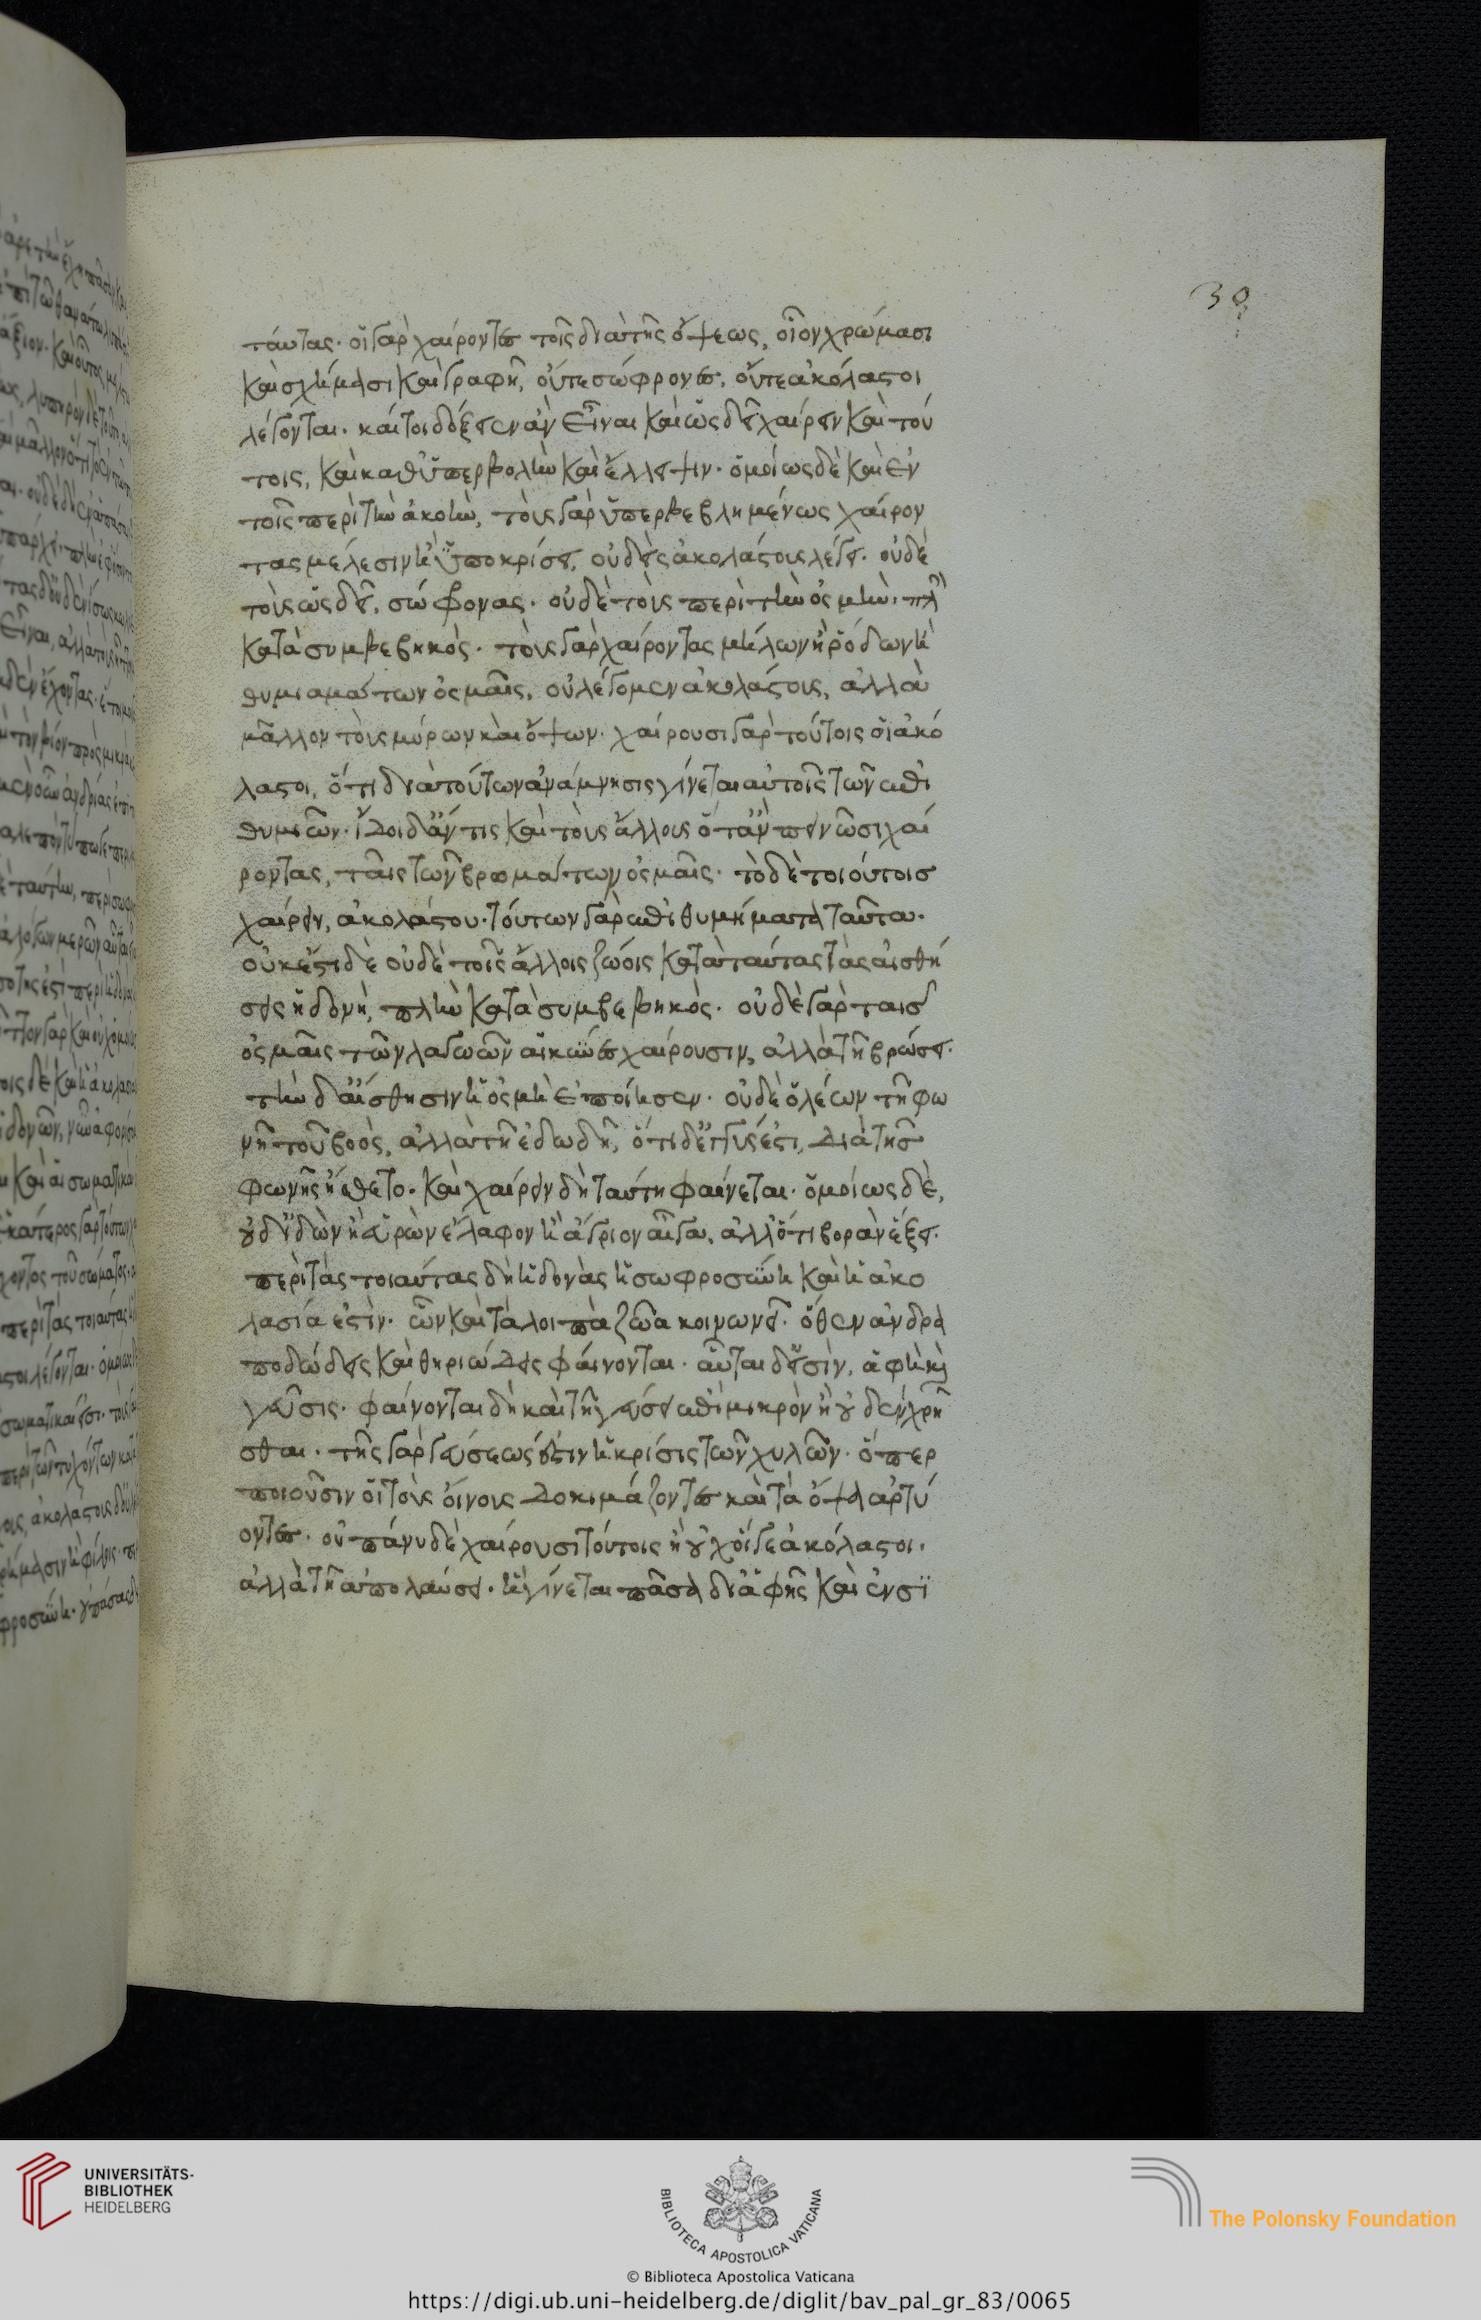 30
ταύτας· οἱ γὰρ χαίροντες τοῖς διὰ τῆς ὄψεως, οἷον χρώμασι
καὶ σχήμασι καὶ γραφῆ, οὔτε σώφρονες, οὔτε ἀκόλαστοι
λέγονται· καίτοι δόξειεν ἂν εἶναι καὶ ὡς δεῖ χαίρειν καὶ τού
τοις, καὶ καθ ὑπερβολὴν καὶ ἔλλειψιν· ὁμοίως δὲ καὶ ἐν
τοῖς περὶ τὴν ἀκοὴν, τοὺς γὰρ ὑπερβεβλημένως χαίρον
τας μέλεσιν ἢ ὑποκρίσει, οὐδεὶς ἀκολάστους λέγει· οὐδὲ
τοὺς ὡς δεῖ, σώφονας· οὐδὲ τοὺς περὶ τὴν ὀσμὴν· πλὴν
κατὰ συμβεβηκὸς· τοὺς γὰρ χαίροντας μήλων ἢ ῥόδων ἢ
θυμιαμάτων ὀσμαῖς, οὐ λέγομεν ἀκολάστους, ἀλλὰ
μᾶλλον τοὺς μύρων καὶ ὄψων· χαίρουσι γὰρ τούτοις οἱ ἀκό
λαστοι, ὅτι διὰ τούτων ἀνάμνησις γίνεται αὐτοῖς τῶν ἐπι
θυμιῶν· ἴδοι δ ἄν τις καὶ τοὺς ἄλλους ὅταν πεινῶσι χαί
ροντας, ταῖς τῶν βρωμάτων ὀσμαῖς· τὸ δὲ τοιούτοις
χαίρειν, ἀκολάστου· τούτων γὰρ ἐπιθυμήματα ταῦτα·
οὐκ ἔστι δὲ οὐδὲ τοῖς ἄλλοις ζώοις κατὰ ταύτας τὰς αἰσθή
σεις ἡδονὴ, πλὴν κατὰ συμβεβηκὸς· οὐδὲ γὰρ ταῖς
ὀσμαῖς τῶν λαγωῶν αἱ κύνες χαίρουσιν, ἀλλὰ τῆ βρώσει·
τὴν δ αἴσθησιν ἡ ὀσμὴ ἐποίησεν· οὐδὲ ὁ λέων τῆ φω
νῆ τοῦ βοὸς, ἀλλὰ τῆ ἐδωδῆ, ὅτι δ ἐγγύς ἐστι, διὰ τῆς
φωνῆς ἤσθετο· καὶ χαίρειν δὴ ταύτη φαίνεται· ὁμοίως δὲ,
οὐδ ἰδὼν ἢ εὑρὼν ἔλαφον ἢ ἄγριον αἶγα, ἀλλ ὅτι βορὰν ἕξει·
περὶ τὰς τοιαύτας δὴ ἡδονὰς ἡ σωφροσύνη καὶ ἡ ἀκο
λασία ἐστὶν· ὧν καὶ τὰ λοιπὰ ζῶα κοινωνεῖ· ὅθεν ἀνδρα
ποδώδεις καὶ θηριώδεις φαίνονται· αὗται δ εἰσὶν, ἁφὴ καὶ
γεῦσις· φαίνονται δὴ καὶ τῆ γεύσει ἐπὶ μικρὸν ἢ οὐδὲν χρῆ
σθαι· τῆς γὰρ γεύσεώς ἐστιν ἡ κρίσις τῶν χυλῶν· ὅπερ
ποιοῦσιν οἱ τοὺς οἴνους δοκιμάζοντες καὶ τὰ ὄψα ἀρτύ
οντες· οὐ πάνυ δὲ χαίρουσι τούτοις ἢ οὐχ οἵ γε ἀκόλαστοι·
ἀλλὰ τῆ ἀπολαύσει· ἣ γίνεται πᾶσα δι ἁφῆς καὶ ἐν σι
UNIVERSITÄTS-
BIBLIOTHEK
HEIDELBERG
BIBLIOTECA APOSTOLICA VATICANA
The Polonsky Foundation
© Biblioteca Apostolica Vaticana
https://digi.ub.uni-heidelberg.de/diglit/bav_pal_gr_83/0065